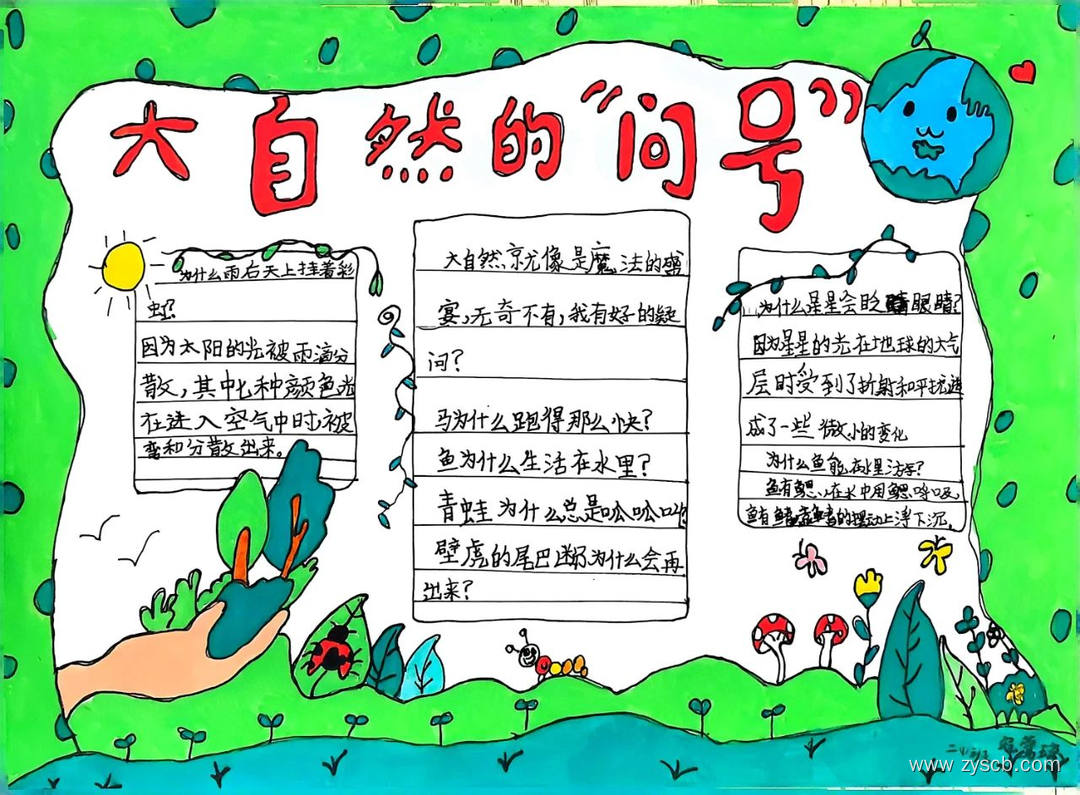 大自然的“问号”
为什么雨后天上挂着彩
虹?
因为太阳的光被雨滴分
散，其中七种颜色光
在进入空气中时被
弯和分散出来。
大自然就像是魔法的盛
宴，无奇不有，我有好的疑
问？
马为什么跑得那么快？
鱼为什么生活在水里？
青蛙为什么总是呱呱叫
壁虎的尾巴断为什么会再
出来？
为什么星星会眨眼睛?
因为星星的光在地球的大气
层时受到了折射和干扰造
成了一些微小的变化
为什么鱼能在水里
鱼有鳃，在水中用鳃呼吸
上浮下沉。
www.zyscb.com